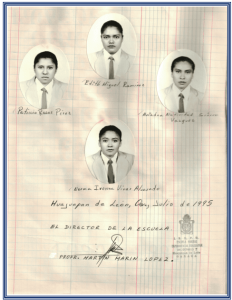 Edith Miguel Ramirez
Patricia Perez
Vasquez
Norma Ivonne Vivar Alvarado
Huajuapan de Leon, Oax, Julio de 1995
EL DIRECTOR DE LA ESCUELA.
PROFR. MARTIN MARIN LOPEZ.